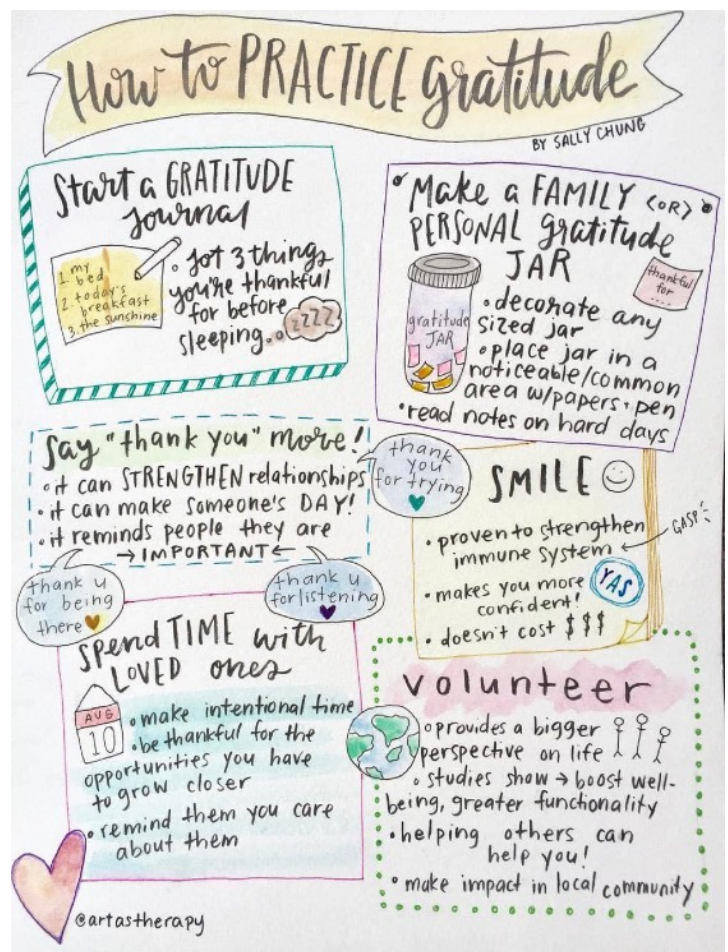 How to PRACTICE gratitude
BY SALLY CHUNG
Start a GRATITUDE
journal
1. my
bed
2. today's
breakfast
3. the sunshine
• jot 3 things
you're thankful
for before
sleeping.
zzzz
• Make a FAMILY <OR> •
PERSONAL gratitude
JAR
thankful
for
....
gratitude
JAR
• decorate any
sized jar
• place jar in a
noticeable/common
area w/papers + pen
• read notes on hard days
Say "thank you" more!
• it can STRENGTHEN relationships
• it can make someone's DAY!
• it reminds people they are
→ IMPORTANT ←
thank
you
for trying
thank u
for being
there
thank u
for listening
SMILE
• proven to strengthen
immune system ← GASP!
• makes you more
confident!
YAS
• doesn't cost $$$
Spend TIME with
LOVED ones
AUG
10
• make intentional time
• be thankful for the
opportunities you have
to grow closer
• remind them you care
about them
volunteer
• provides a bigger
perspective on life
• studies show → boost well-
being, greater functionality
• helping others can
help you!
• make impact in local community
@artastherapy